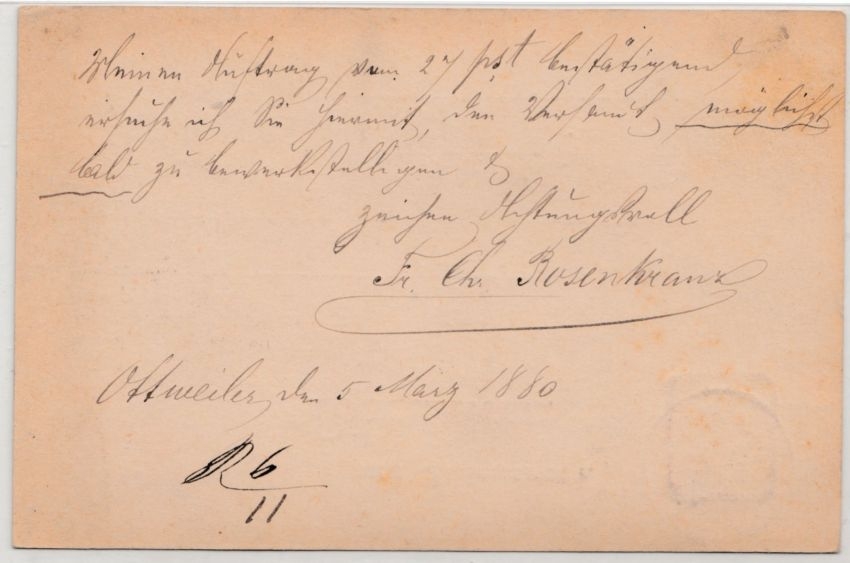 Meinen Auftrag vom 27 pst bestätigend
ersuche ich Sie hiermit, den Versandt möglichst
bald zu bewerkstelligen &
zeichne Achtungsvoll
Fr. Chr. Rosenkranz
Ottweiler, den 5 März 1880
R 6
11